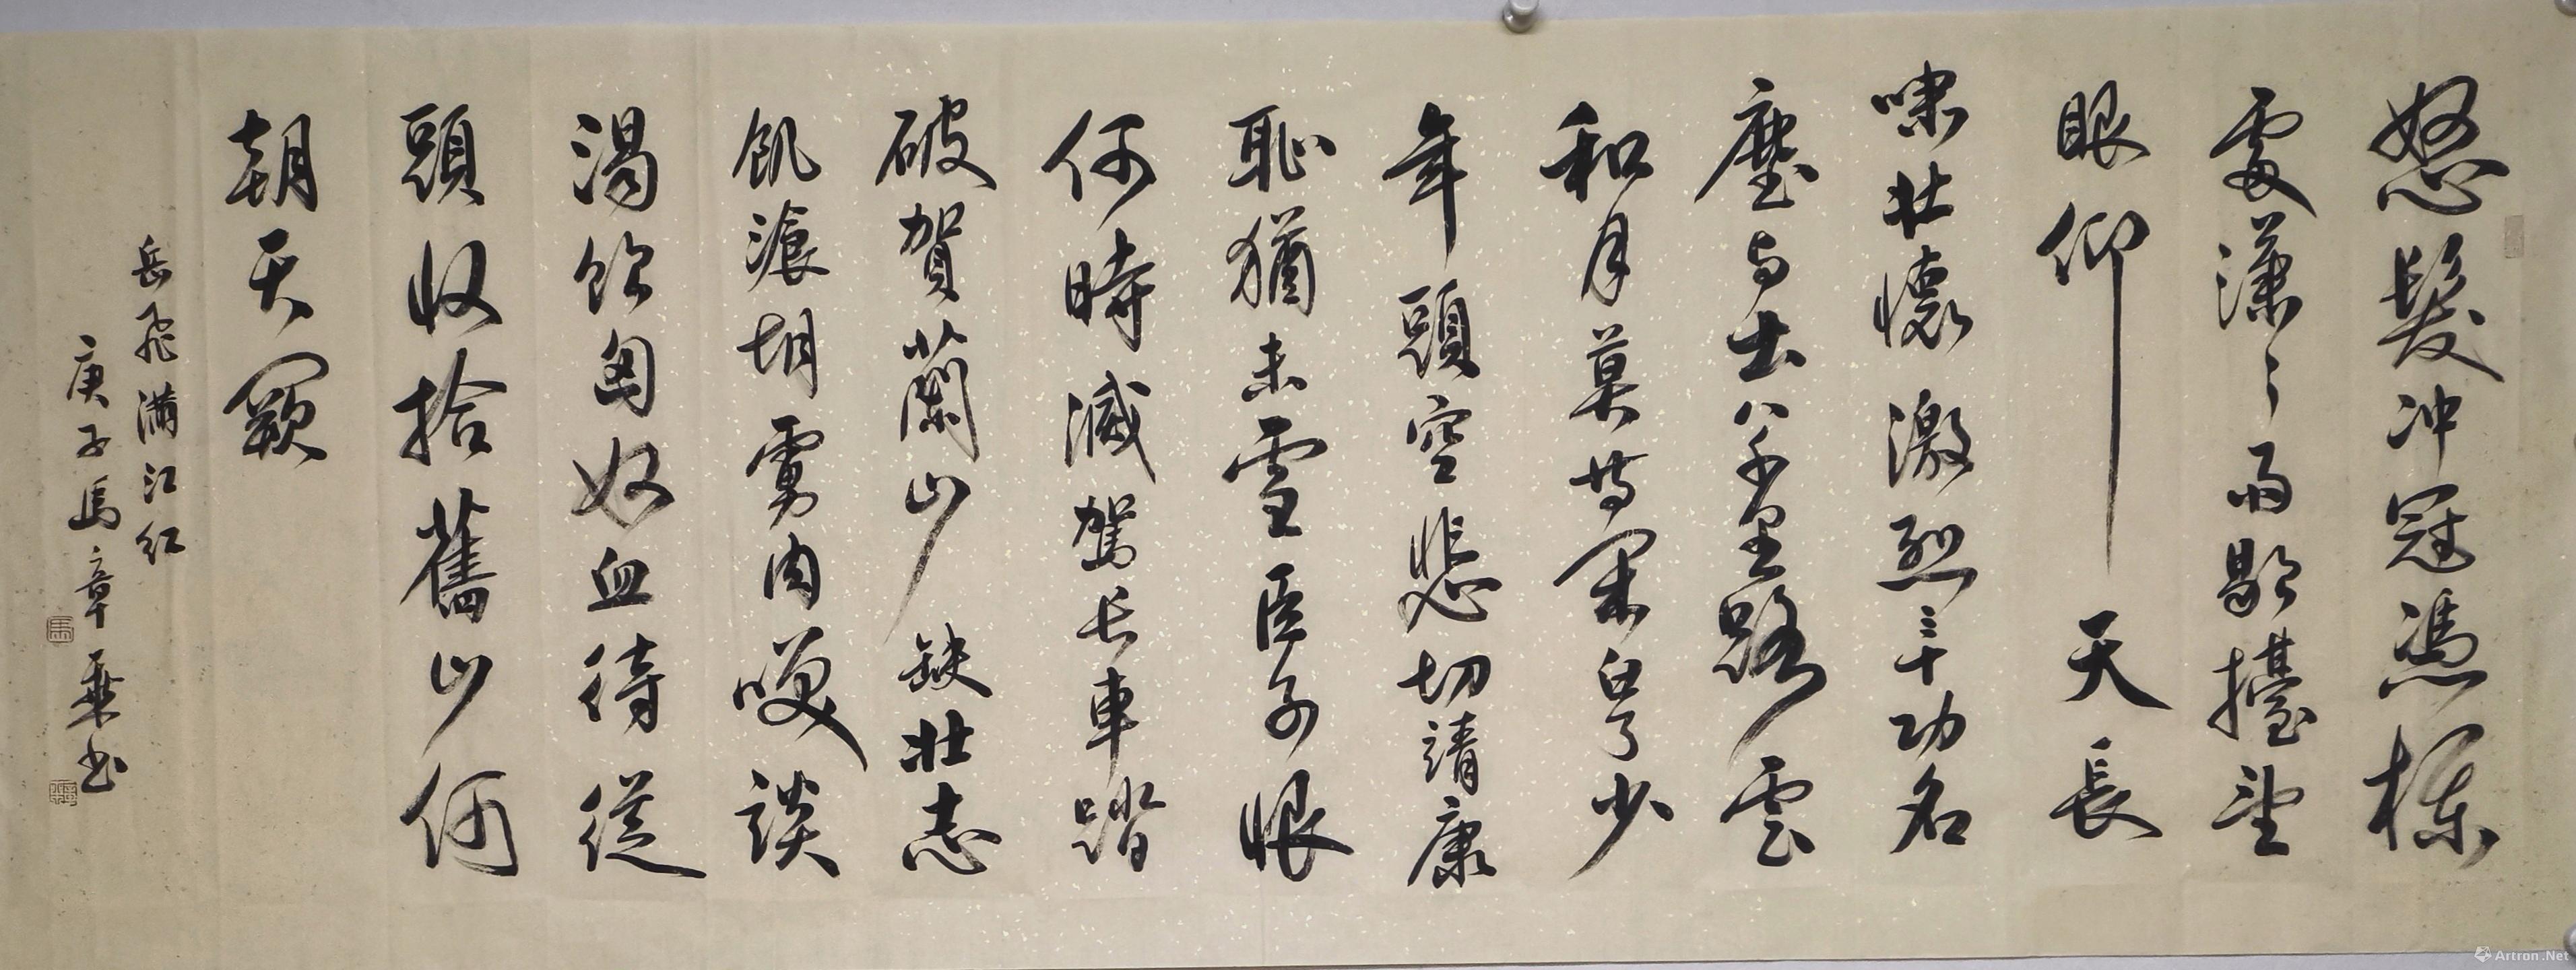 怒髮冲冠憑欄
處潇々雨歇擡望
眼仰天長
嘯壮懷激烈三十功名
塵与土八千里路雲
和月莫等闲白了少
年頭空悲切靖康
恥猶未雪臣子恨
何時滅駕长車踏
破賀蘭山缺壯志
飢湌胡虜肉咲談
渴飲匈奴血待從
頭收拾舊山何
朝天闕
岳飛滿江红
庚子馬章乘书
Artron.Net